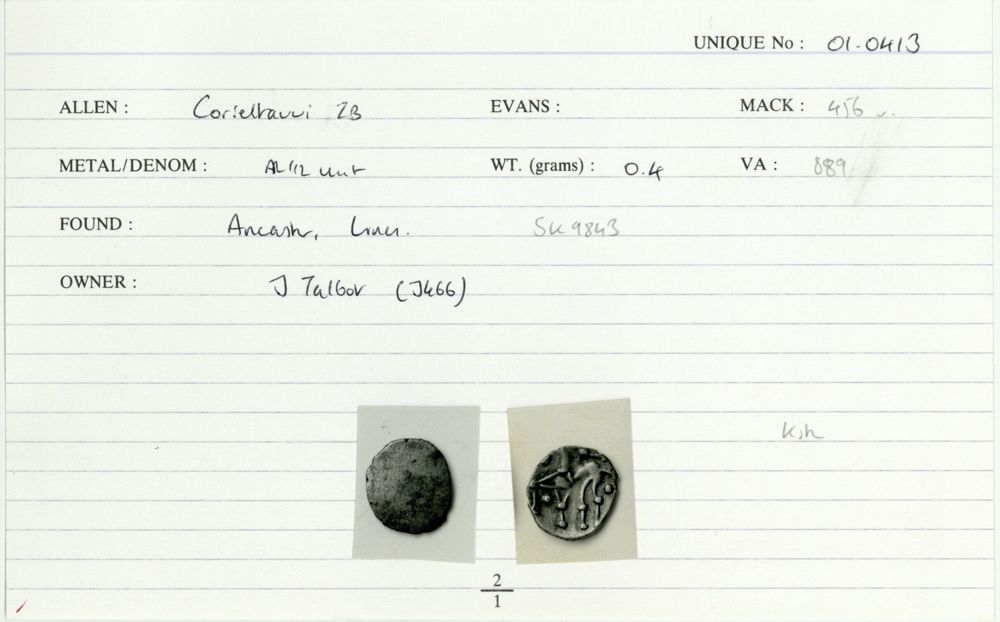 UNIQUE No : 01-0413
ALLEN : Corieltauvi 2B EVANS : MACK : 456
METAL/DENOM : AR 1/2 unit WT. (grams) : 0.4 VA : 889
FOUND : Ancaster, Lincs. SK 9843
OWNER : J Talbot (J466)
2
1